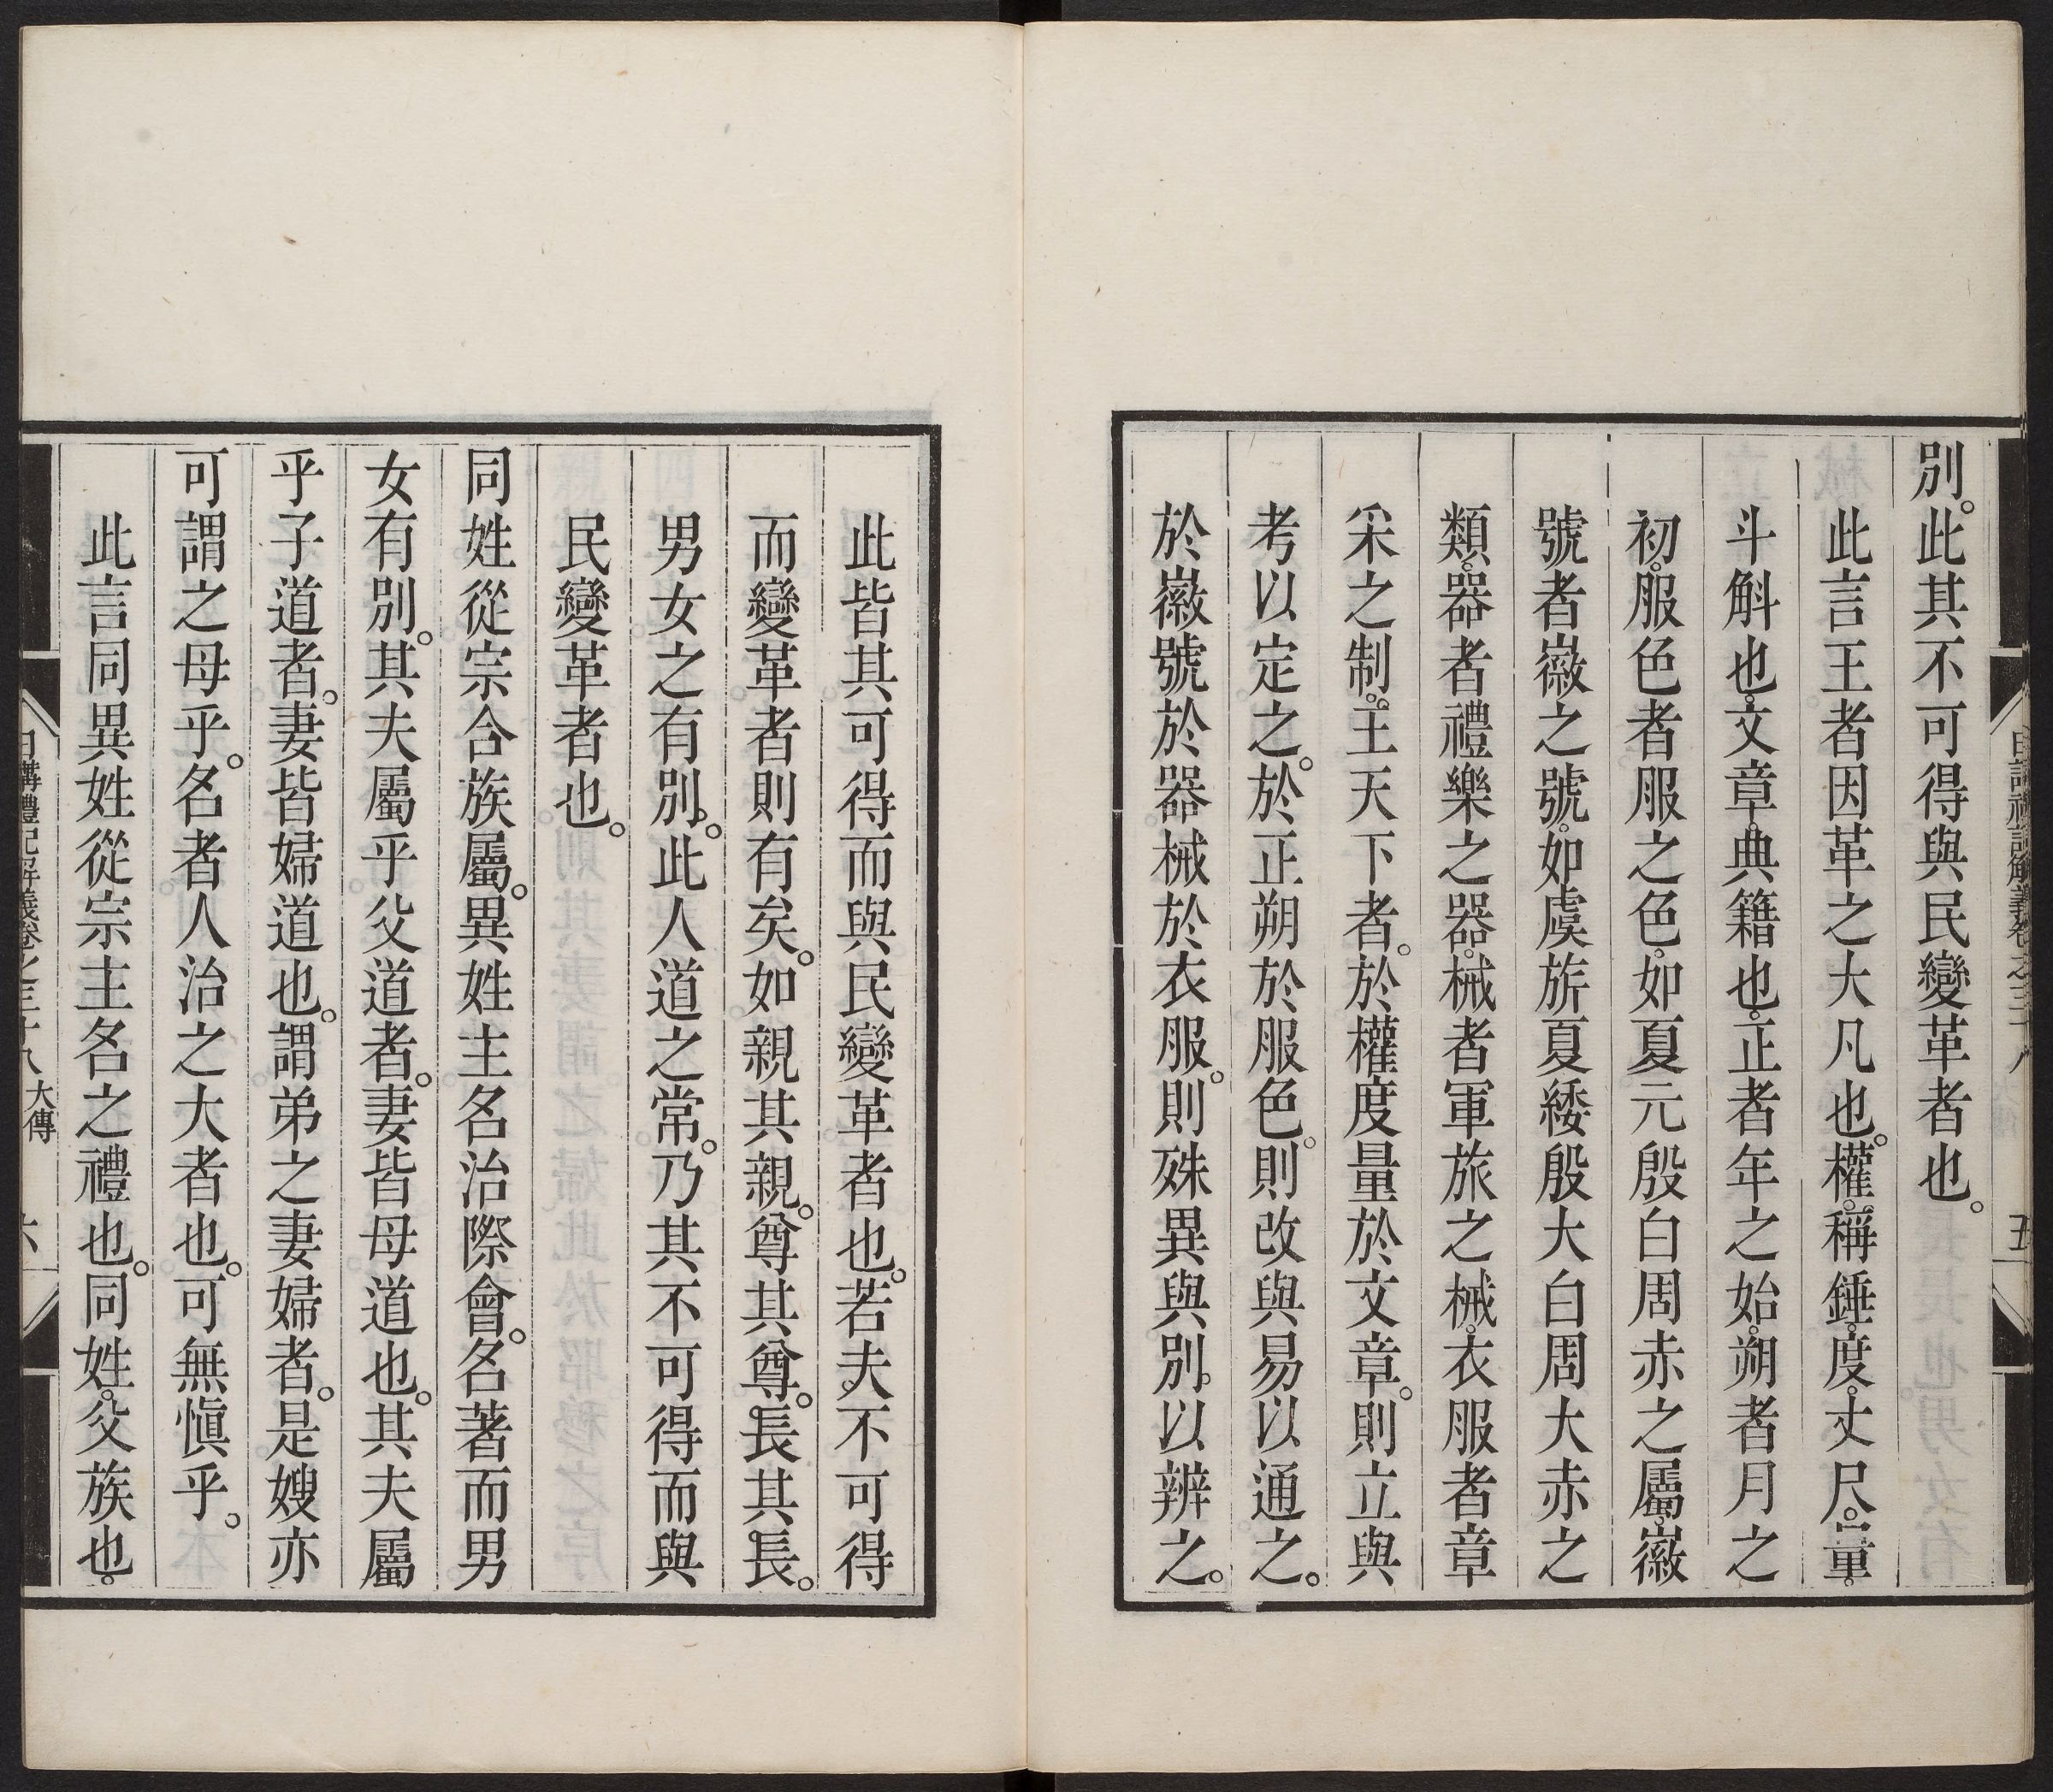 別。此其不可得與民變革者也。
此言王者因革之大凡也。權。稱錘。度。丈尺。量。
斗斛也。文章。典籍也。正者年之始。朔者月之
初。服色者服之色。如夏元殷白周赤之屬。徽
號者徽之號。如虞旂夏緌殷大白周大赤之
類。器者禮樂之器。械者軍旅之械。衣服者章
采之制。王天下者。於權度量於文章。則立與
考以定之。於正朔於服色。則改與易以通之。
於徽號於器械於衣服。則殊異與別。以辨之。
日講禮記解義卷之三十八
五
此皆其可得而與民變革者也。若夫不可得
而變革者則有矣。如親其親。尊其尊。長其長。
男女之有別。此人道之常。乃其不可得而與
民變革者也。
同姓從宗合族屬。異姓主名治際會。名著而男
女有別。其夫屬乎父道者。妻皆母道也。其夫屬
乎子道者。妻皆婦道也。謂弟之妻婦者。是嫂亦
可謂之母乎。名者人治之大者也。可無慎乎。
此言同異姓從宗主名之禮也。同姓。父族也。
日講禮記解義卷之三十八 大傳
六